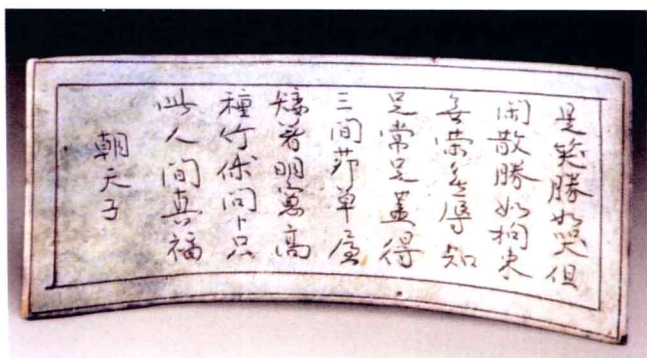 是笑勝如哭但
閑散勝如拘束
無荣無辱知
足常足蓋得
三間茆草屋
矮着明窓高
種竹休問卜只
此人間真福
朝天子